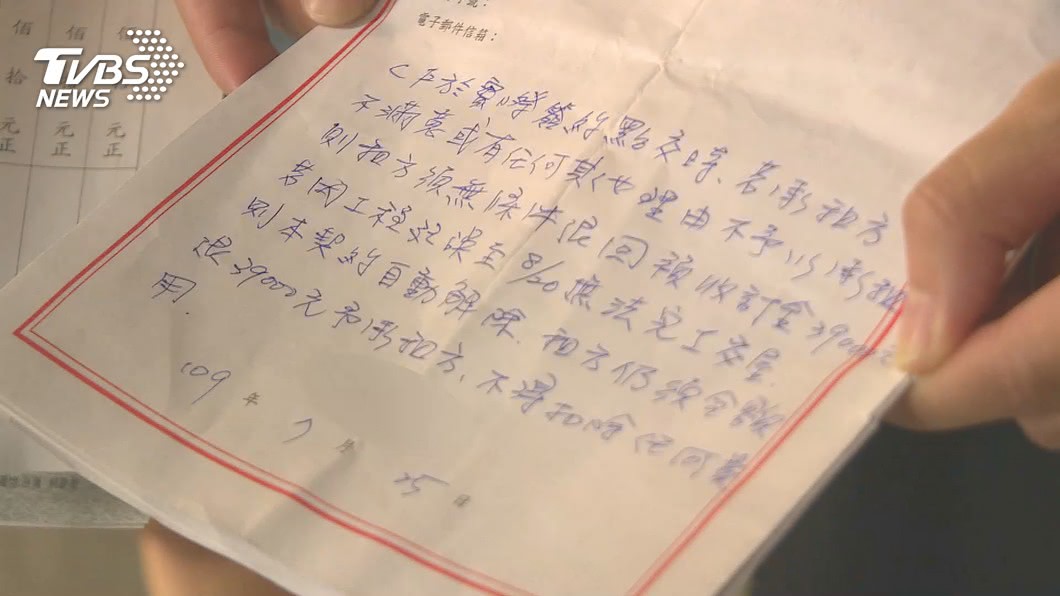 佰
佰
拾
元正
元正
元正
TVBS
NEWS
電子郵件信箱：
C戶於實際簽約點交時、若承租方
不滿意或有任何其他理由不予以承租
則租方須無條件退回預收訂金39000元
若因工程延誤至8/20無法完工交屋.
則本契約自動解除. 租方仍須全額
退39000元予承租方、不得扣除任何費
用.
109年7月25日